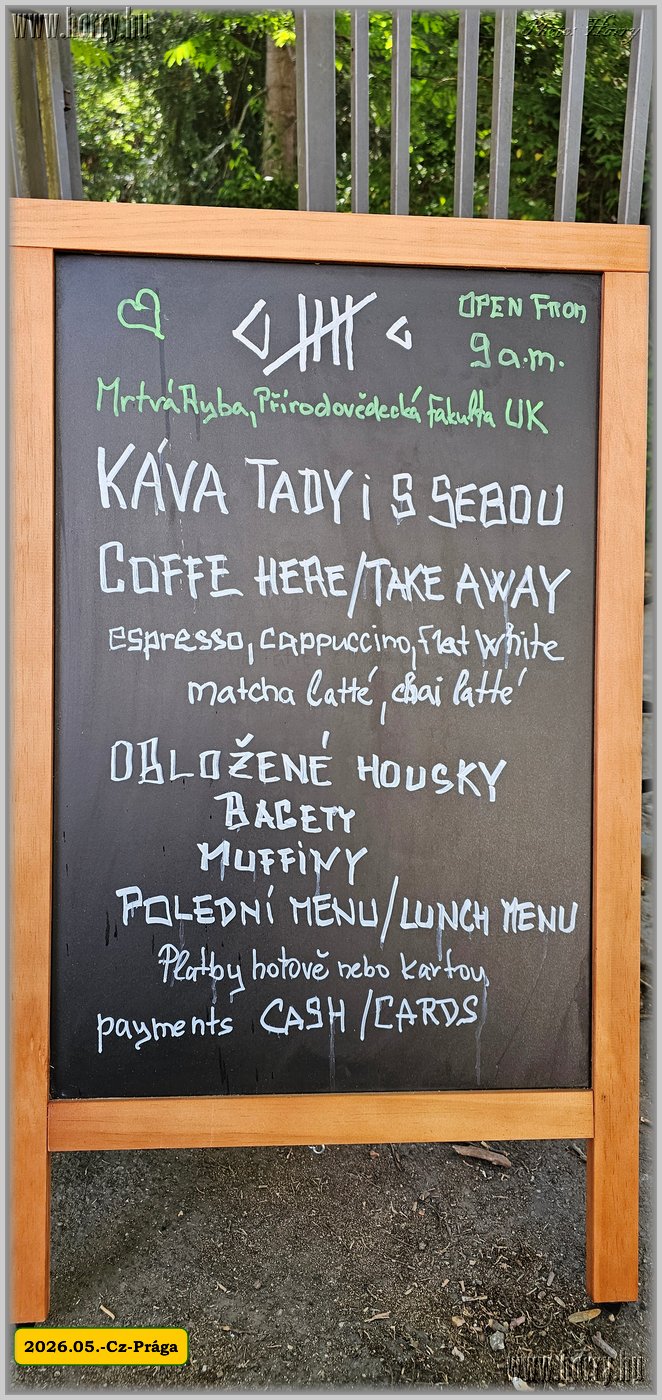 www.horry.hu
Piros Horry
OPEN FROM
9 a.m.
Mrtvá Ryba, Přírodovědecká fakulta UK
KÁVA TADY i S SEBOU
COFFE HERE/TAKE AWAY
espresso, cappuccino, flat white
matcha latté, chai latté
OBLOŽENÉ HOUSKY
BAGETY
MUFFINY
POLEDNÍ MENU/LUNCH MENU
Platby hotově nebo kartou
payments CASH/CARDS
2026.05.-Cz-Prága
www.horry.hu